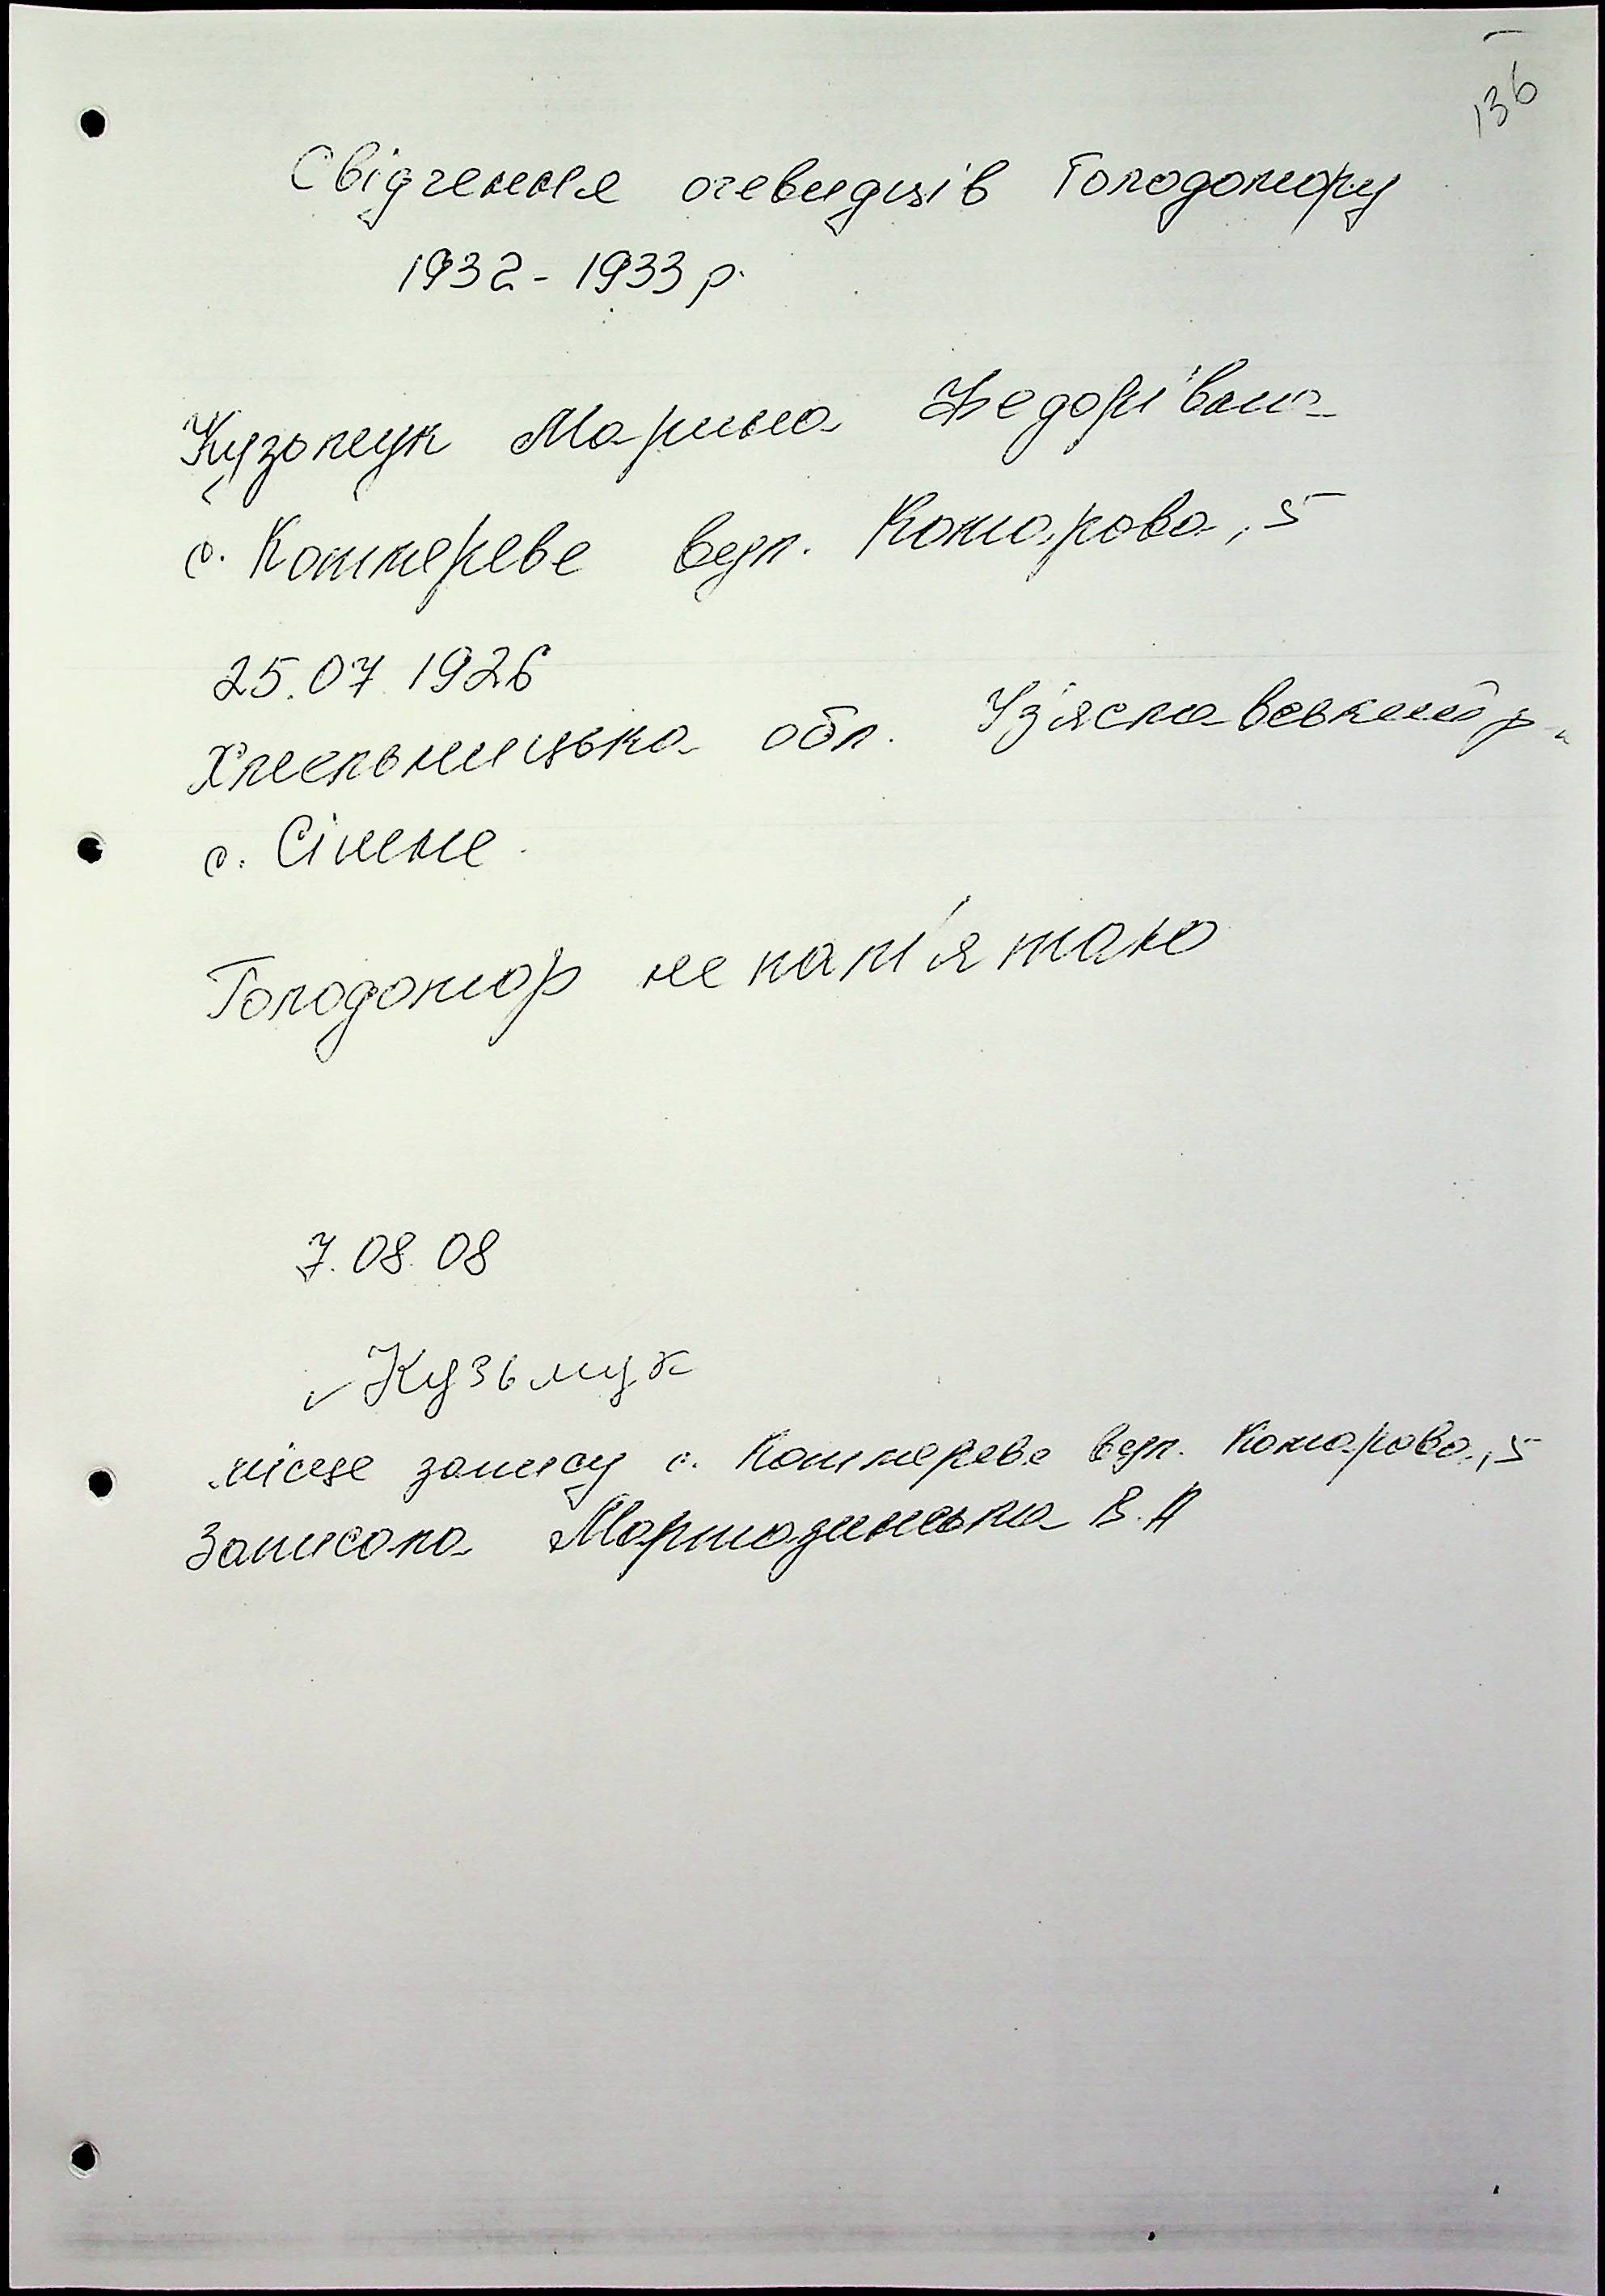 136
Свідчення очевидців Голодомору
1932-1933 р.
Кузьмук Марина Федорівна
с. Котмереве вул. Комарова, 5
25.07 1926
Хмельницька обл. Ізяславський р-н
с. Сінне
Голодомор не пам'ятаю
7.08.08
✓ Кузьмук
місце запису с. вул. Комарова, 5
Записала В.А